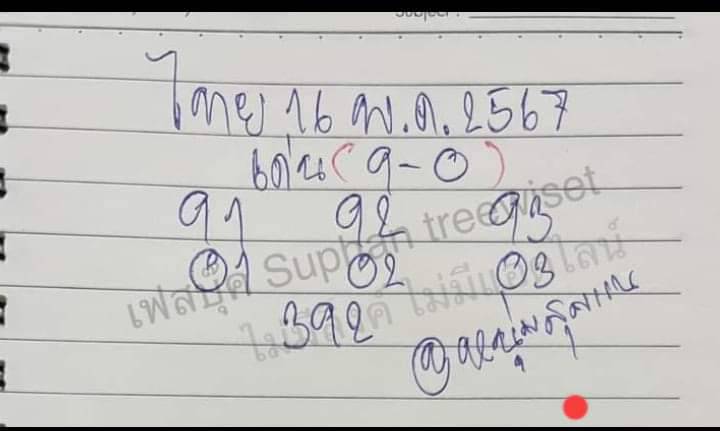 Subject :
ไทย 16 พ.ค. 2567
เด่น (9-0)
91 92 93
01 02 03
392
เฟสบุ๊ค Suphan treewiset
ไม่มีไลน์